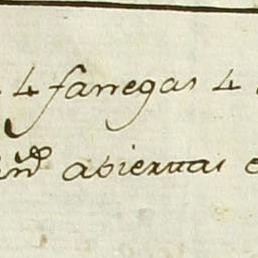 4 fanegas 4
abiertas